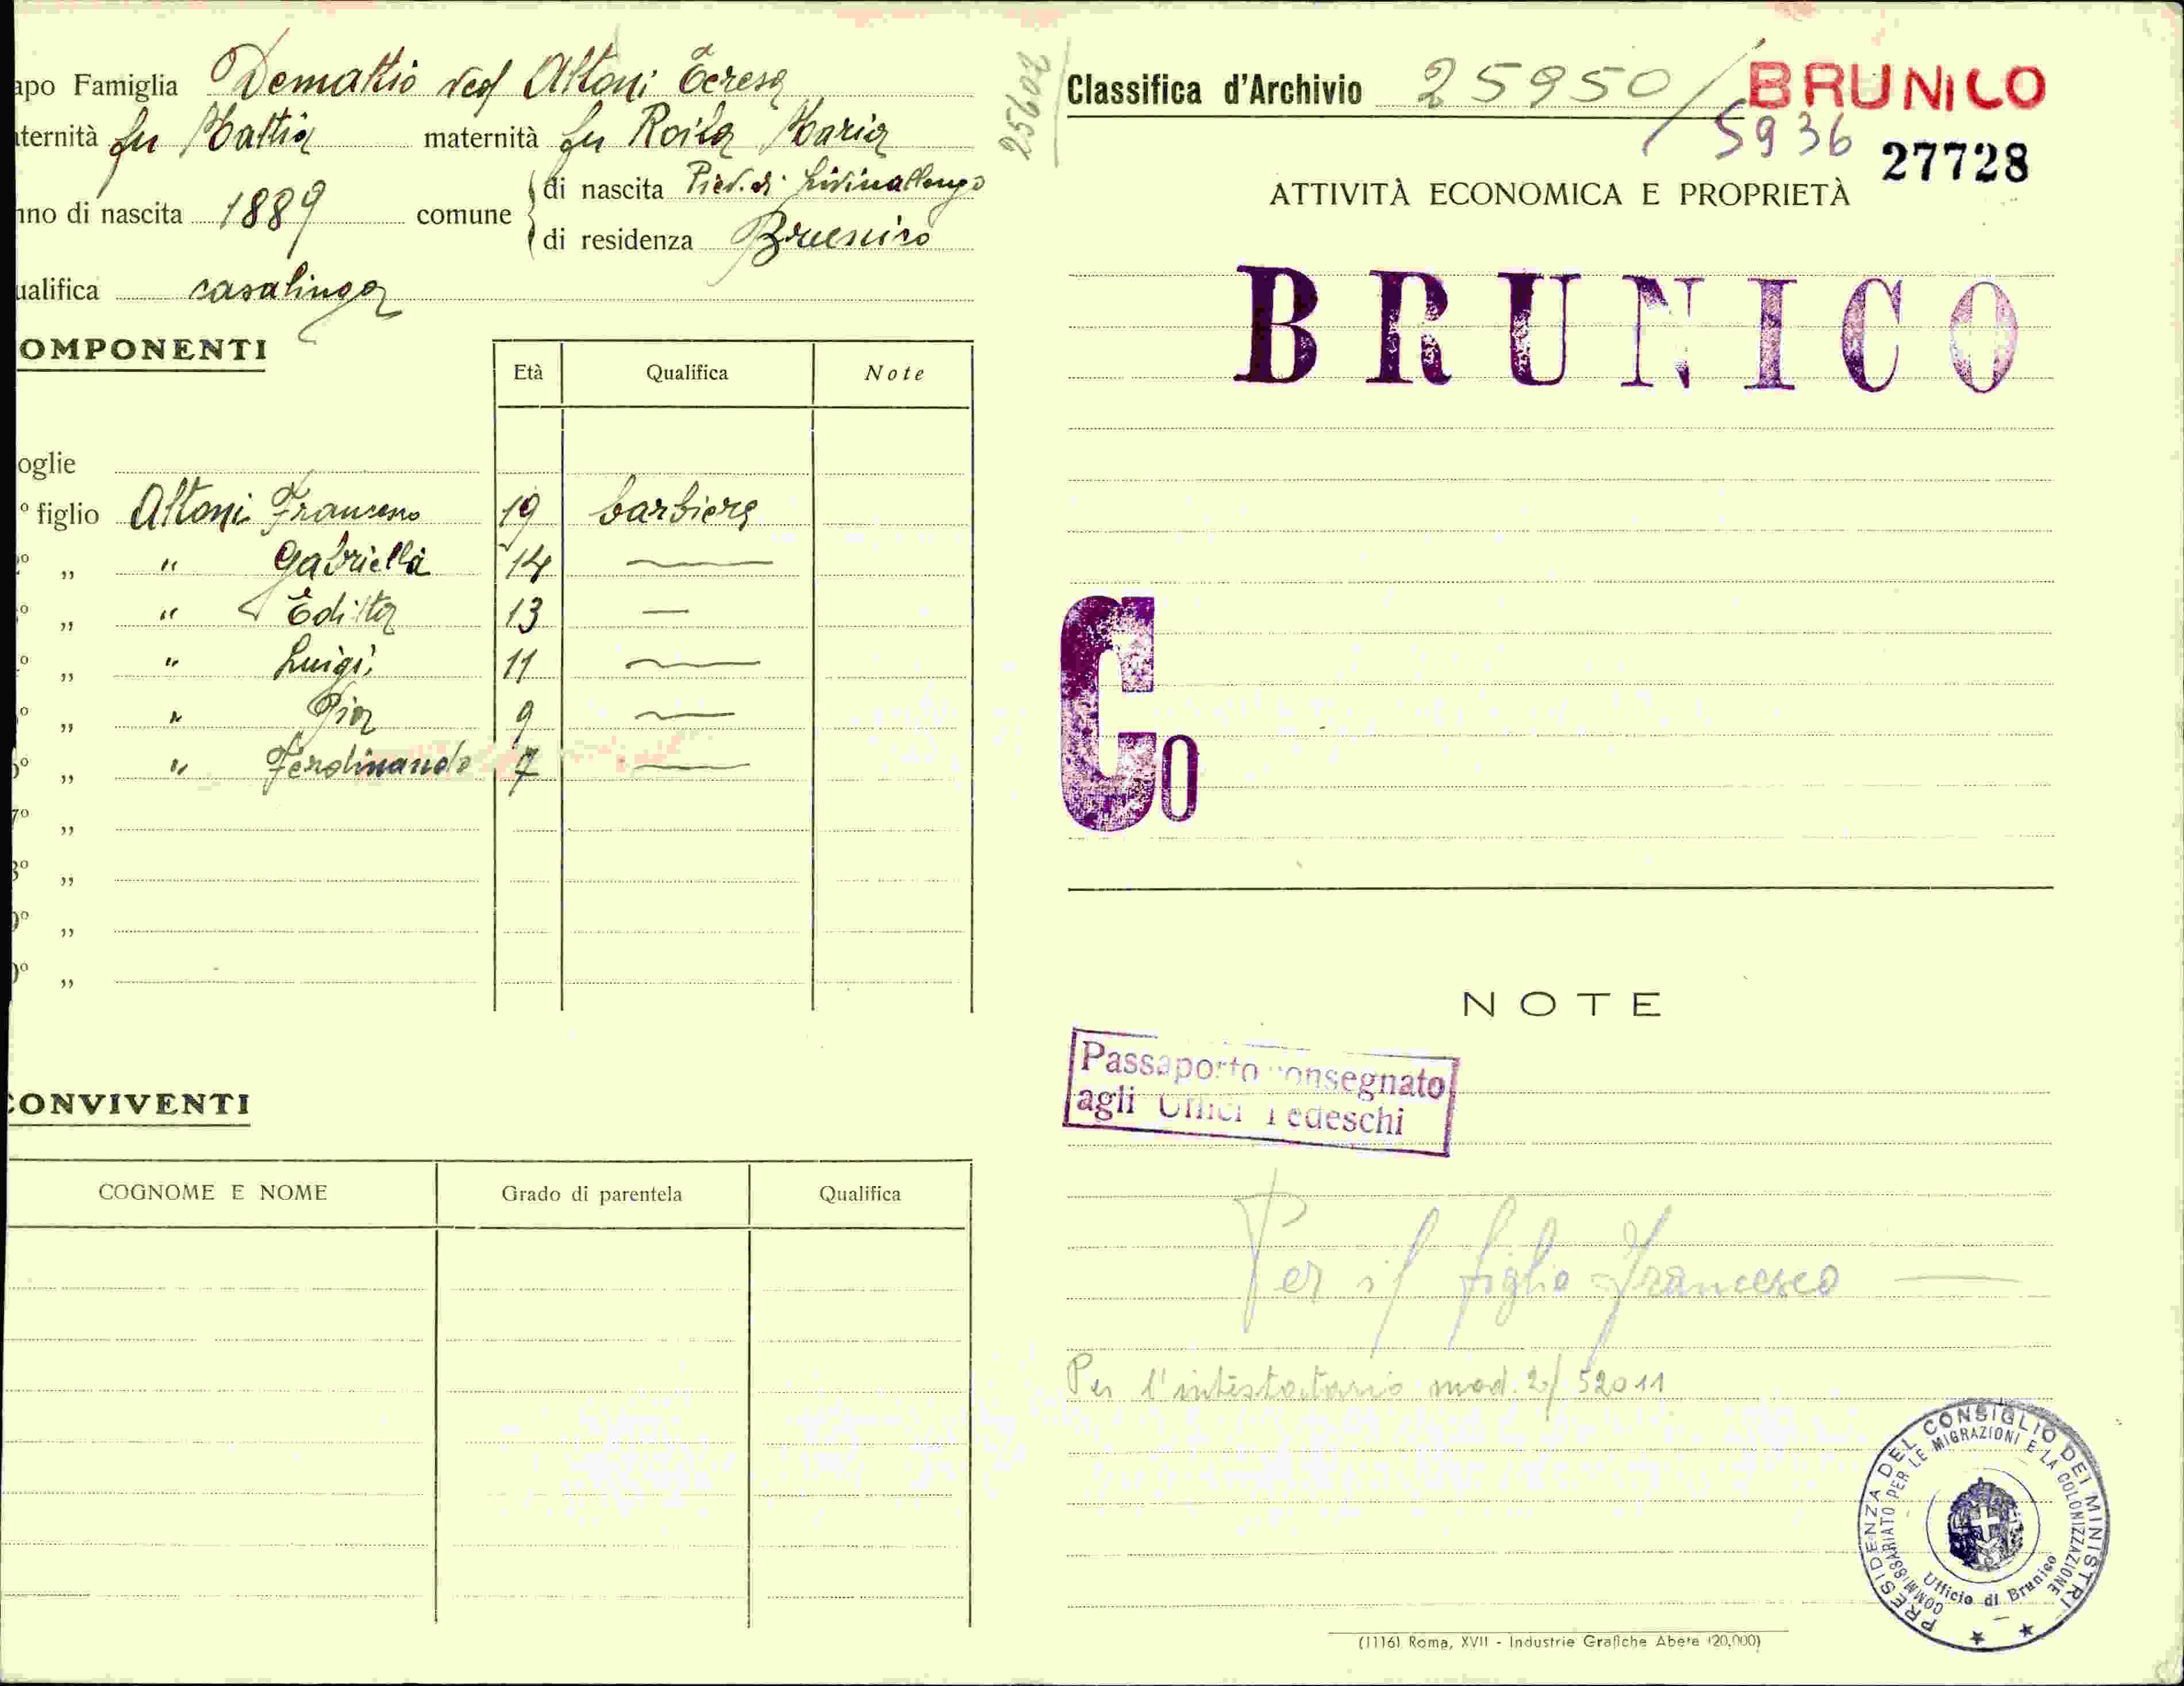 apo Famiglia Demattio ved Altoni Teresa
aternità fu Mattia maternità fu Roilo Maria
nno di nascita 1889 comune di nascita Piev. di Livinallongo
di residenza Brunico
ualifica casalinga
OMPONENTI
Età Qualifica Note
oglie
° figlio Altoni Francesco 19 barbiere
° ,, " Gabriella 14 —
° ,, " Editta 13 —
° ,, " Luigi 11 —
° ,, " Pia 9 —
6° ,, " Ferdinando 7 —
7° ,,
8° ,,
9° ,,
0° ,,
CONVIVENTI
COGNOME E NOME Grado di parentela Qualifica
25602
Classifica d'Archivio 25950/ BRUNICO
5936
27728
ATTIVITÀ ECONOMICA E PROPRIETÀ
BRUNICO
Co
NOTE
Passaporto consegnato
agli Uffici Tedeschi
Per il figlio Francesco —
Per l'intestatario mod. 2/52011
PRESIDENZA DEL CONSIGLIO DEI MINISTRI
COMMISSARIATO PER LE MIGRAZIONI E LA COLONIZZAZIONE
Ufficio di Brunico
(1116) Roma, XVII - Industrie Grafiche Abete (20.000)